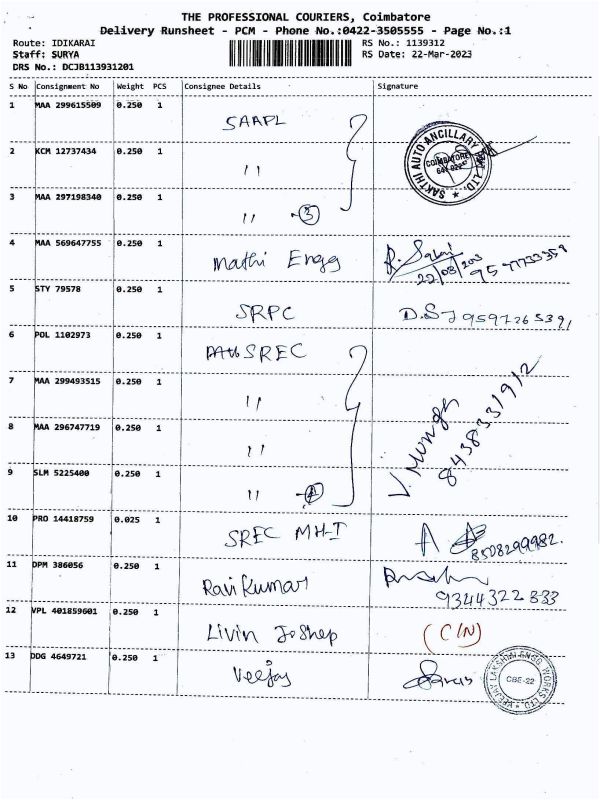 THE PROFESSIONAL COURIERS, Coimbatore
Delivery Runsheet - PCM - Phone No.:0422-3505555 - Page No.:1
Route: IDIKARAI RS No.: 1139312
Staff: SURYA RS Date: 22-Mar-2023
DRS No.: DCJB113931201
S No Consignment No Weight PCS Consignee Details Signature
1 MAA 299615509 0.250 1 SAAPL
SAKTHI AUTO ANCILLARY LTD.
COIMBATORE
2 KCM 12737434 0.250 1 ''
3 MAA 297198340 0.250 1 '' - 3
4 MAA 569647755 0.250 1 Mathi Engg
5 STY 79578 0.250 1 SRPC D.S
6 POL 1102973 0.250 1 SREC
7 MAA 299493515 0.250 1 ''
8 MAA 296747719 0.250 1 ''
8438331912
9 SLM 5225400 0.250 1 ''
10 PRO 14418759 0.025 1 SREC MH-I A 8508299982.
11 DPM 386056 0.250 1 Ravi Kumar
9344322833
12 VPL 401859601 0.250 1 Livin Joshep (CIN)
13 DDG 4649721 0.250 1 Veejay
CBE-22